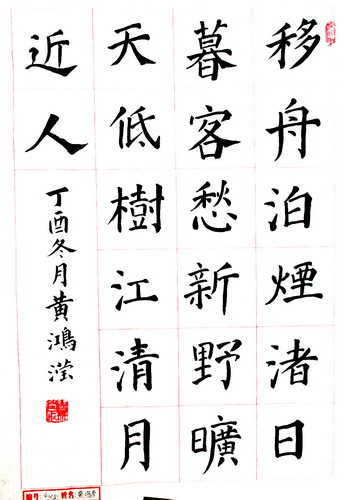 移舟泊煙渚日
暮客愁新野曠
天低樹江清月
近人
丁酉冬月黄鴻瀅
编号: 姓名: